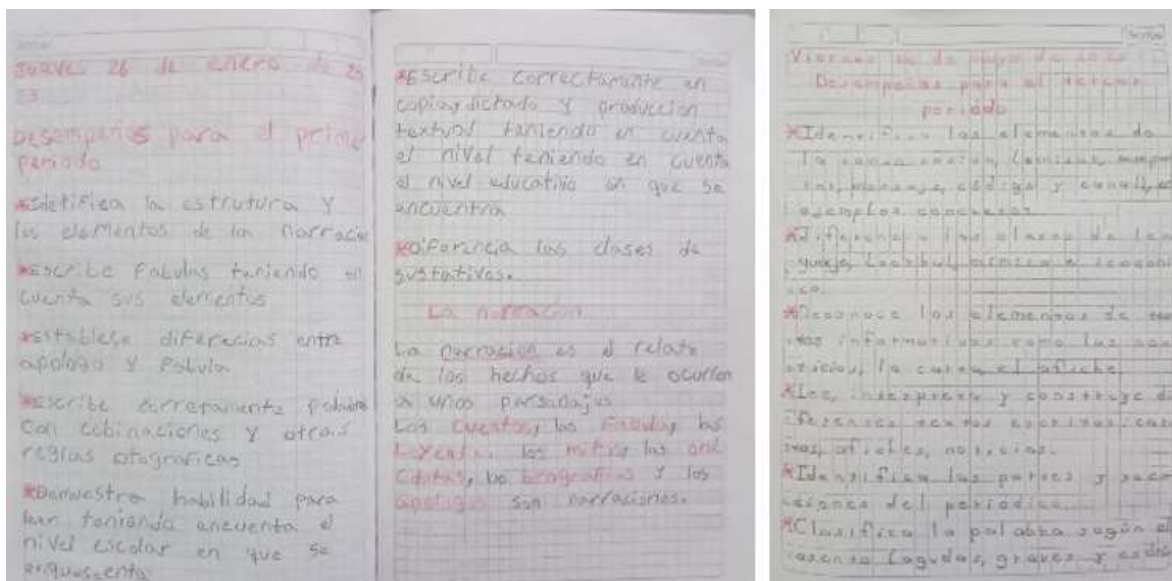 Jueves 26 de enero de 20
23
Desempeños para el primer
periodo
*Idetifica la estrutura y
los elementos de la narració
*Escribe Fabulas teniendo en
cuenta sus elementos
*establece diferecias entre
apologo y Fabula
*Escribe corretamente palabras
con cobinaciones y otras
reglas otograficas
*Demuestra habilidad para
leer teniendo encuenta el
nivel escolar en que se
*Escribe correctamente en
copias, dictado y produccion
textual teniendo en cuenta
el nivel teniendo en cuenta
el nivel educativo en que se
encuentra
*Diferencia las clases de
sustativos.
La narración
La narración es el relato
de los hechos que le ocurren
a unos personajes
Los cuentos, las Fabulas, las
Leyendas, los mitos, las ané
cdotas, las biografias y los
apologos son narraciones.
Viernes de de
Desempeños para el tercer
periodo
*Identifica los elementos de
la comunicación, (emisor,
mensaje, código y canal),
ejemplos concretos
*Diferencia las clases de len
guaje,
ico.
*Reconoce los elementos de
tos informativos como las not
icias, la carta, el afiche
*Lee, interpreta y construye d
iferentes textos escritos: car
tas, afiches, noticias.
*Identifica las partes y secc
iones del periódico.
*Clasifica la palabra según el
acento (agudas, graves y esdrú